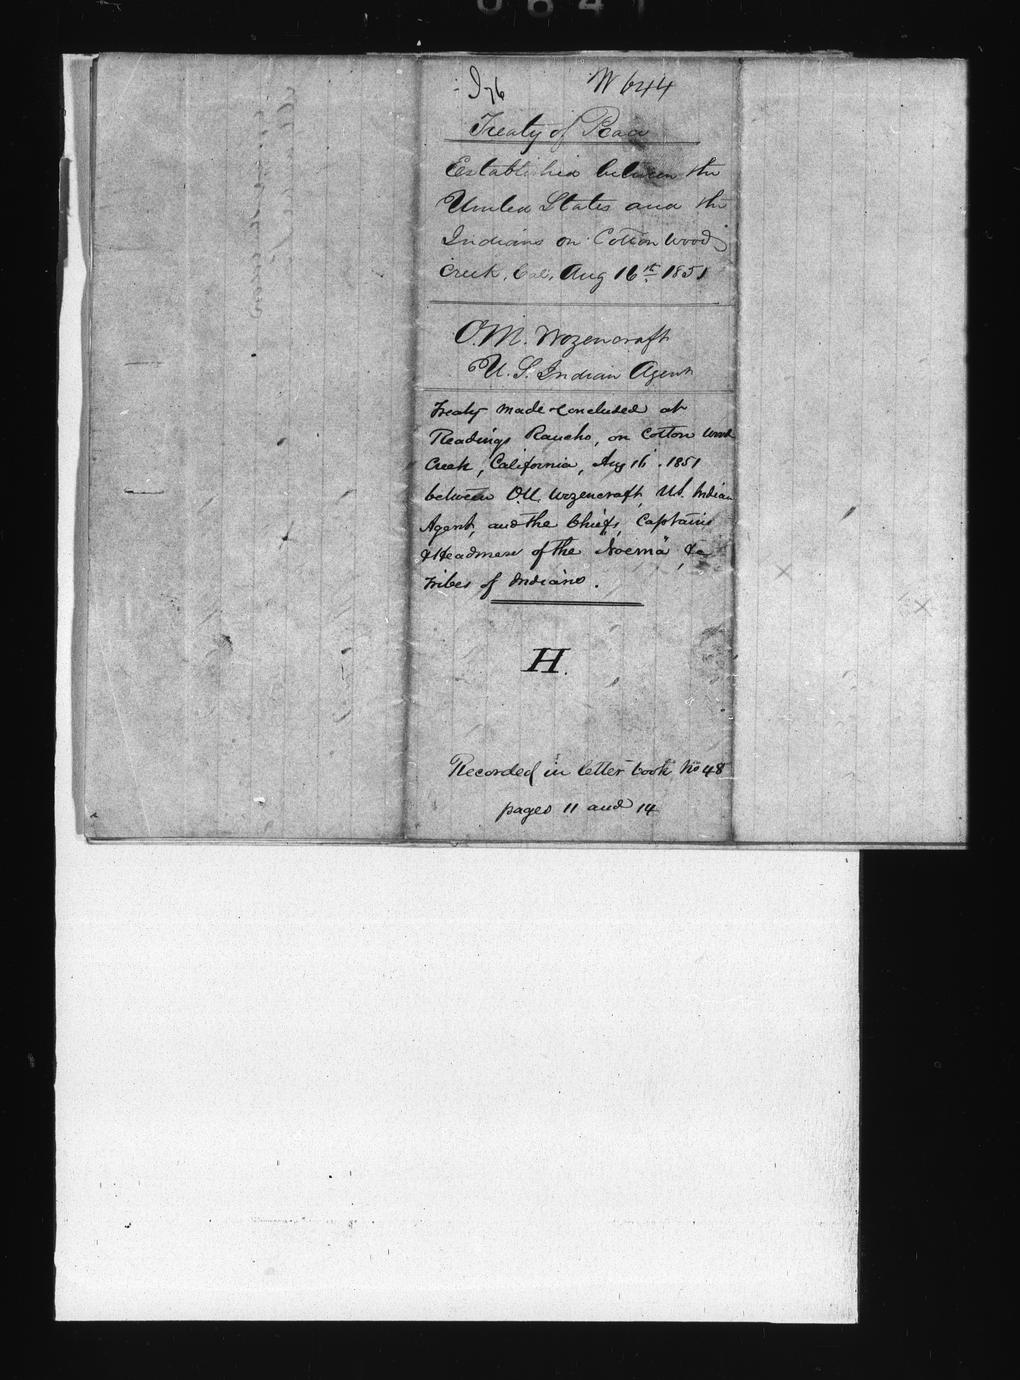 0641
I 76 W 644
Treaty of Peace
Established between the
United States and the
Indians on Cotton wood
Creek, Cal, Aug 16th 1851
O. M. Wozencraft
U. S. Indian Agent
Treaty made & concluded at
Readings Rancho, on Cotton wood
Creek, California, Aug 16. 1851
between O.M. Wozencraft U.S. Indian
Agent, and the Chiefs, Captains
& Headmen of the "Noema", &c
tribes of Indians.
H.
Recorded in letter book No 48
pages 11 and 14